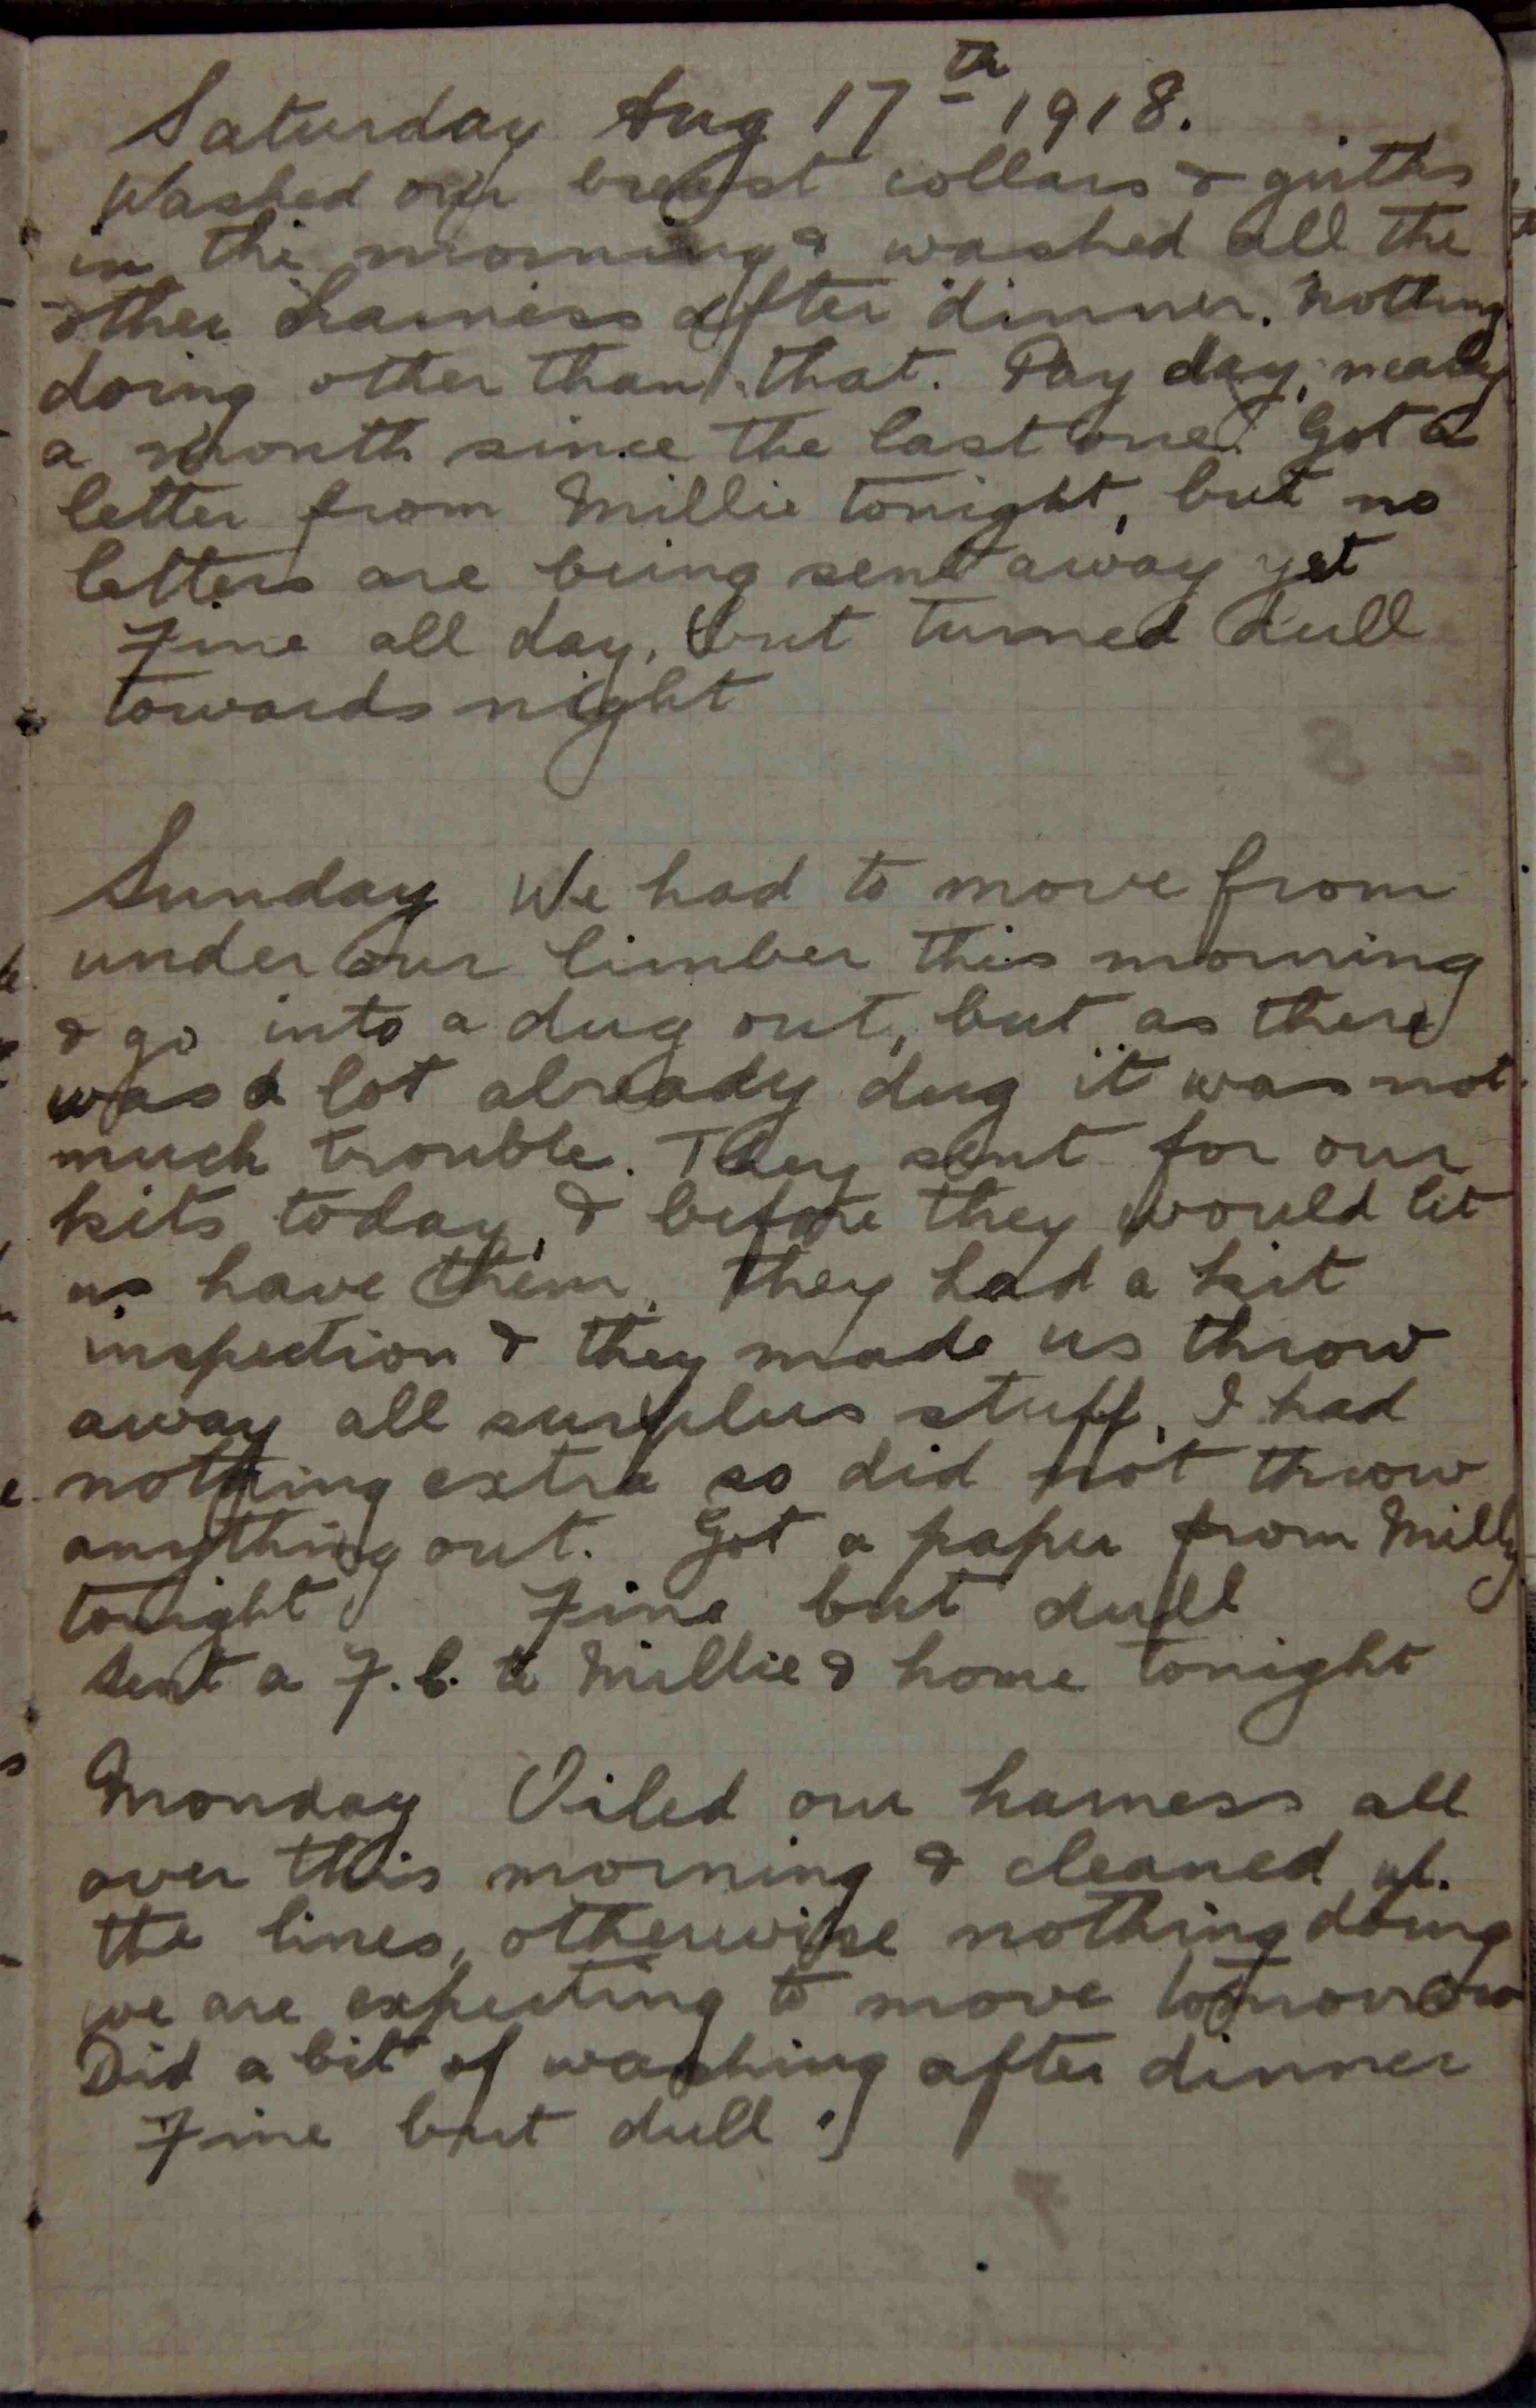 Saturday Aug 17th 1918.
Washed our breast collars & girths
in the morning & washed all the
other harness after dinner. Nothing
doing other than that. Pay day, nearly
a month since the last one. Got a
letter from Millie tonight, but no
letters are being sent away yet
Fine all day, but turned dull
towards night
Sunday We had to move from
under our limber this morning
& go into a dug out, but as there
was a lot already dug it was not
much trouble. They sent for our
kits today, & before they would let
us have them, they had a kit
inspection & they made us throw
away all surplus stuff, I had
nothing extra so did not throw
anything out. Got a paper from Milly
tonight Fine but dull
Sent a F.C. to Millie & home tonight
Monday Oiled our harness all
over this morning & cleaned up
the lines, otherwise nothing doing
we are expecting to move tomorrow
Did a bit of washing after dinner
Fine but dull.